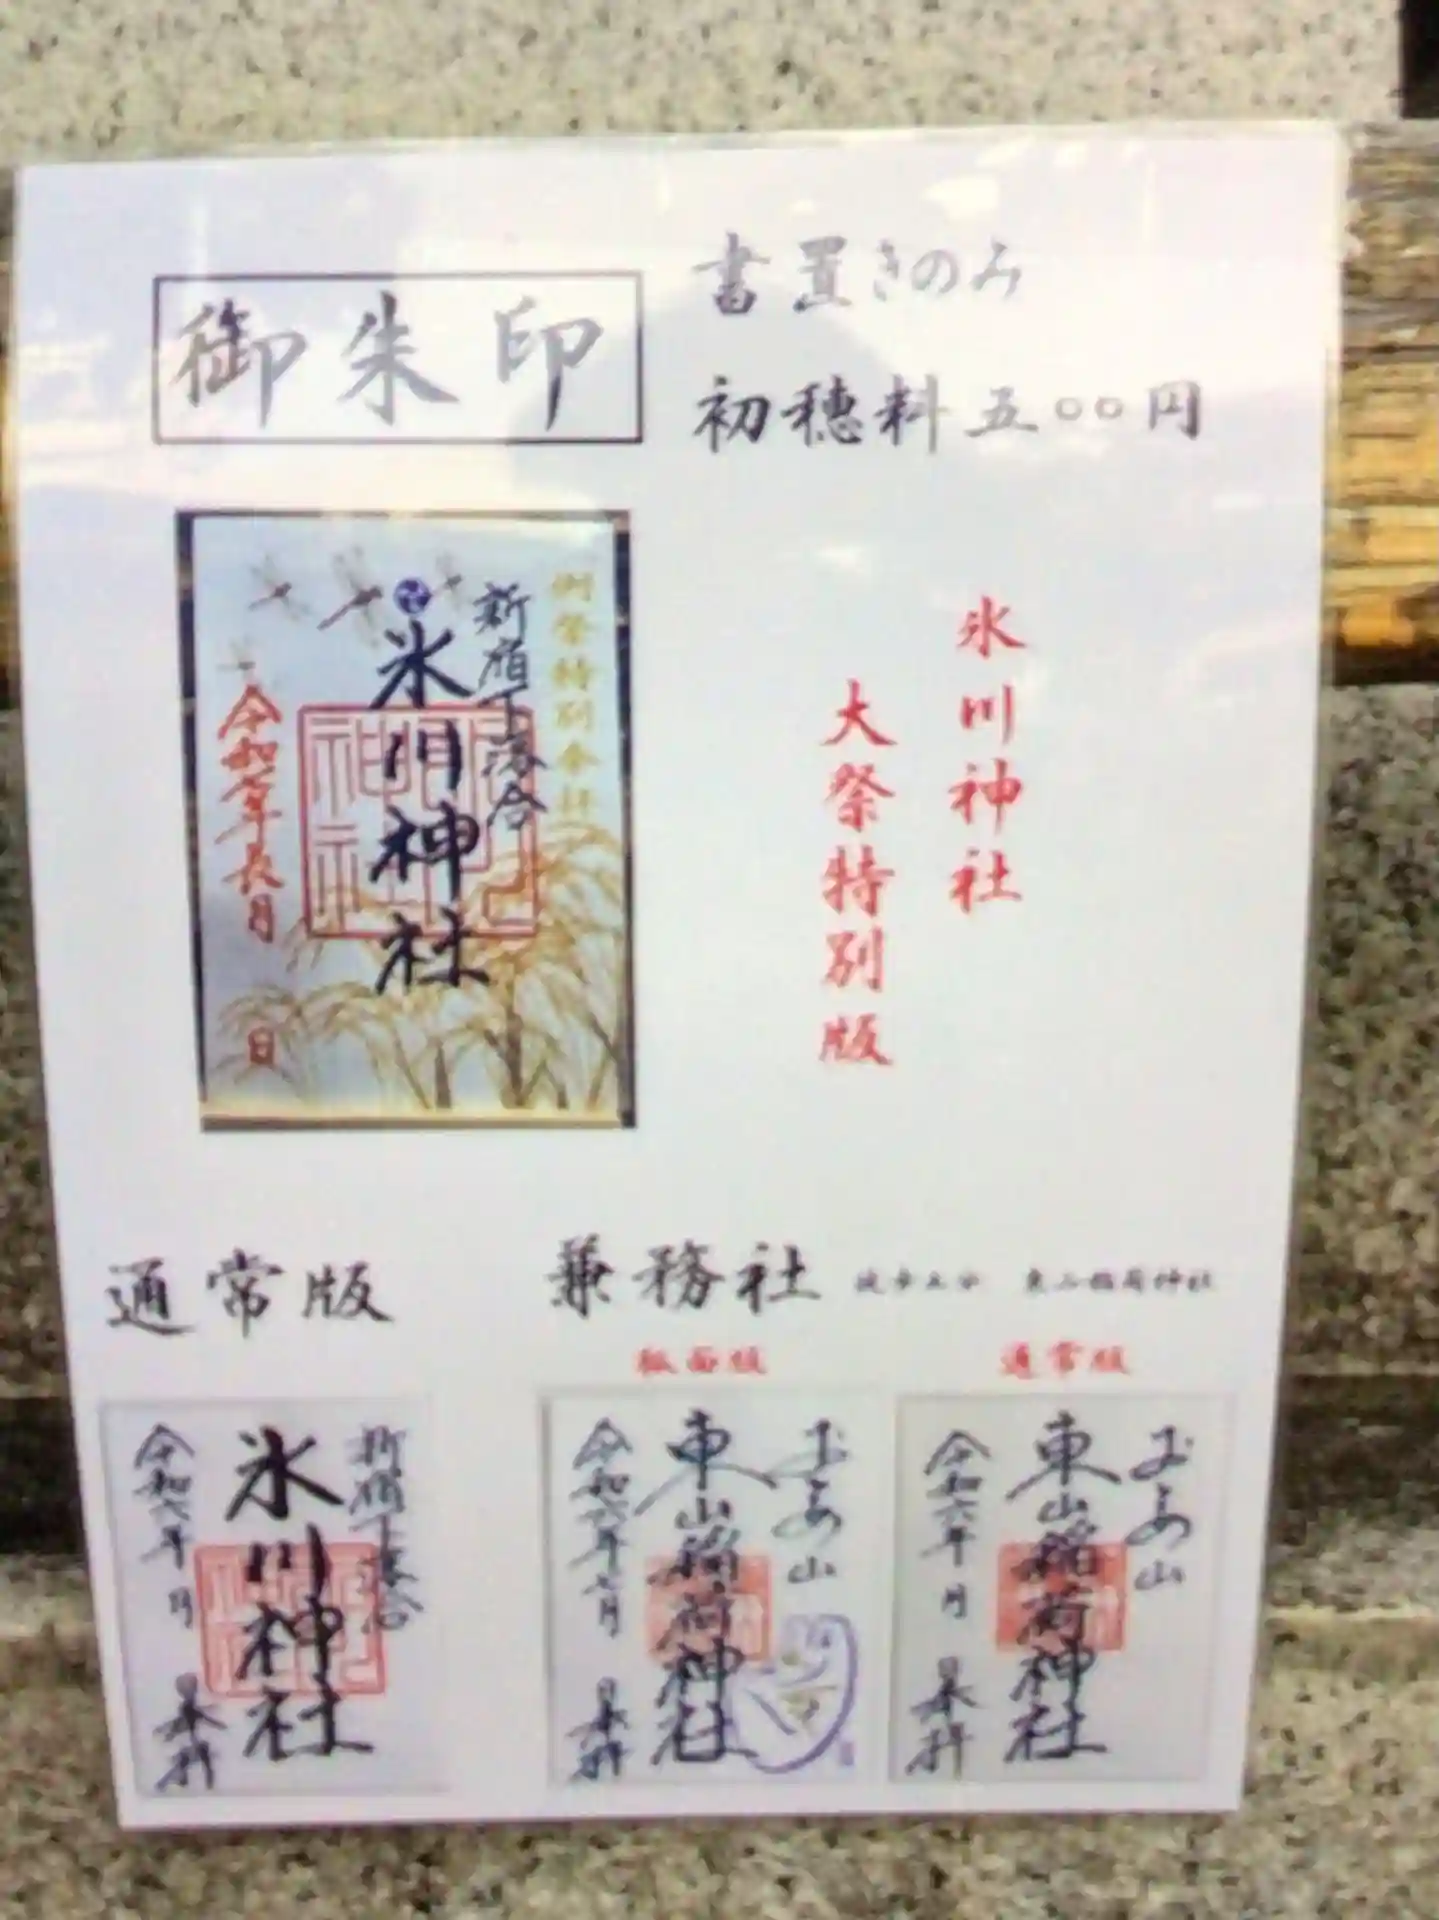 御朱印
書置きのみ
初穂料五〇〇円
氷川神社
大祭特別版
例祭特別参拝
新宿下落合
氷川神社
令和七年長月
日
通常版
兼務社
徒歩五分 東山稲荷神社
狐面版
通常版
新宿下落合
氷川神社
令和六年 月 日
東山稲荷神社
令和六年七月 日
東山稲荷神社
令和六年 月 日